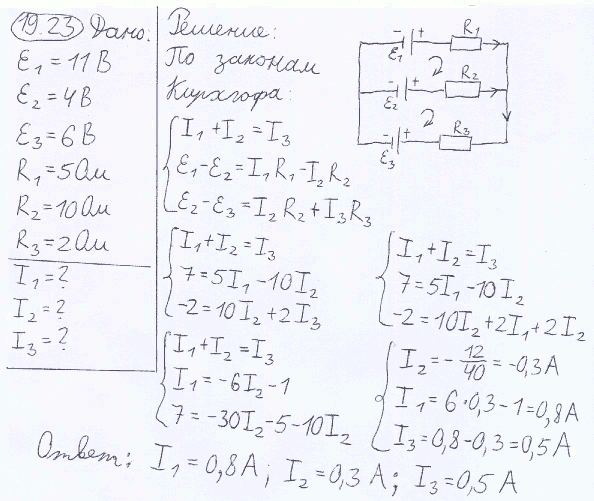 19.23 Дано:
ℰ₁ = 11 В
ℰ₂ = 4 В
ℰ₃ = 6 В
R₁ = 5 Ом
R₂ = 10 Ом
R₃ = 2 Ом
I₁ = ?
I₂ = ?
I₃ = ?
Решение:
По законам
Кирхгофа:
I₁ + I₂ = I₃
ℰ₁ - ℰ₂ = I₁R₁ - I₂R₂
ℰ₂ - ℰ₃ = I₂R₂ + I₃R₃
- + ℰ₁ R₁
- + ℰ₂ R₂
- + ℰ₃ R₃
I₁ + I₂ = I₃
7 = 5I₁ - 10I₂
-2 = 10I₂ + 2I₃
I₁ + I₂ = I₃
7 = 5I₁ - 10I₂
-2 = 10I₂ + 2I₁ + 2I₂
I₁ + I₂ = I₃
I₁ = -6I₂ - 1
7 = -30I₂ - 5 - 10I₂
I₂ = - 12/40 = -0,3 А
I₁ = 6·0,3 - 1 = 0,8 А
I₃ = 0,8 - 0,3 = 0,5 А
Ответ: I₁ = 0,8 А; I₂ = 0,3 А; I₃ = 0,5 А